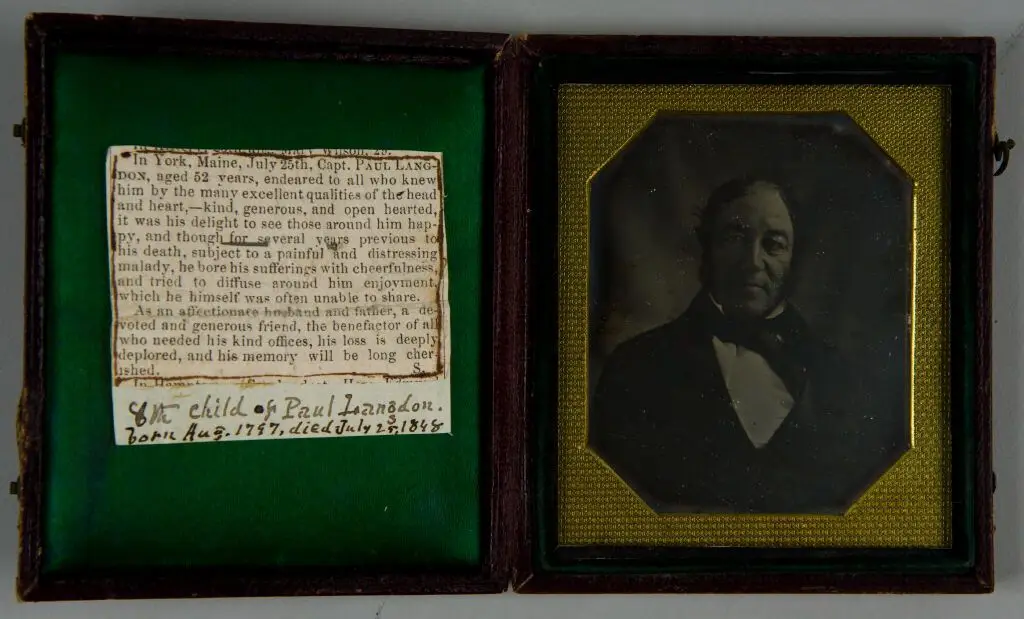 Mary Wilson, 29.
In York, Maine, July 25th, Capt. PAUL LANG-
DON, aged 52 years, endeared to all who knew
him by the many excellent qualities of the head
and heart,—kind, generous, and open hearted,
it was his delight to see those around him hap-
py, and though for several years previous to
his death, subject to a painful and distressing
malady, he bore his sufferings with cheerfulness,
and tried to diffuse around him enjoyment,
which he himself was often unable to share.
As an affectionate husband and father, a de-
voted and generous friend, the benefactor of all
who needed his kind offices, his loss is deeply
deplored, and his memory will be long cher-
ished. S.
8th child of Paul Langdon.
born Aug. 1797, died July 25, 1848